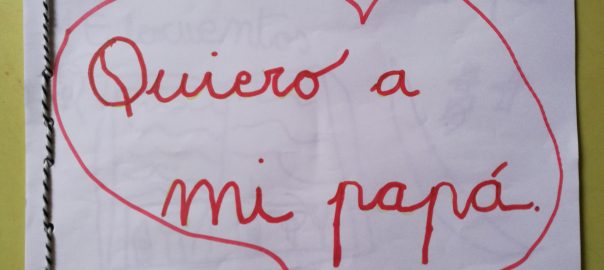 Quiero a
mi papá.